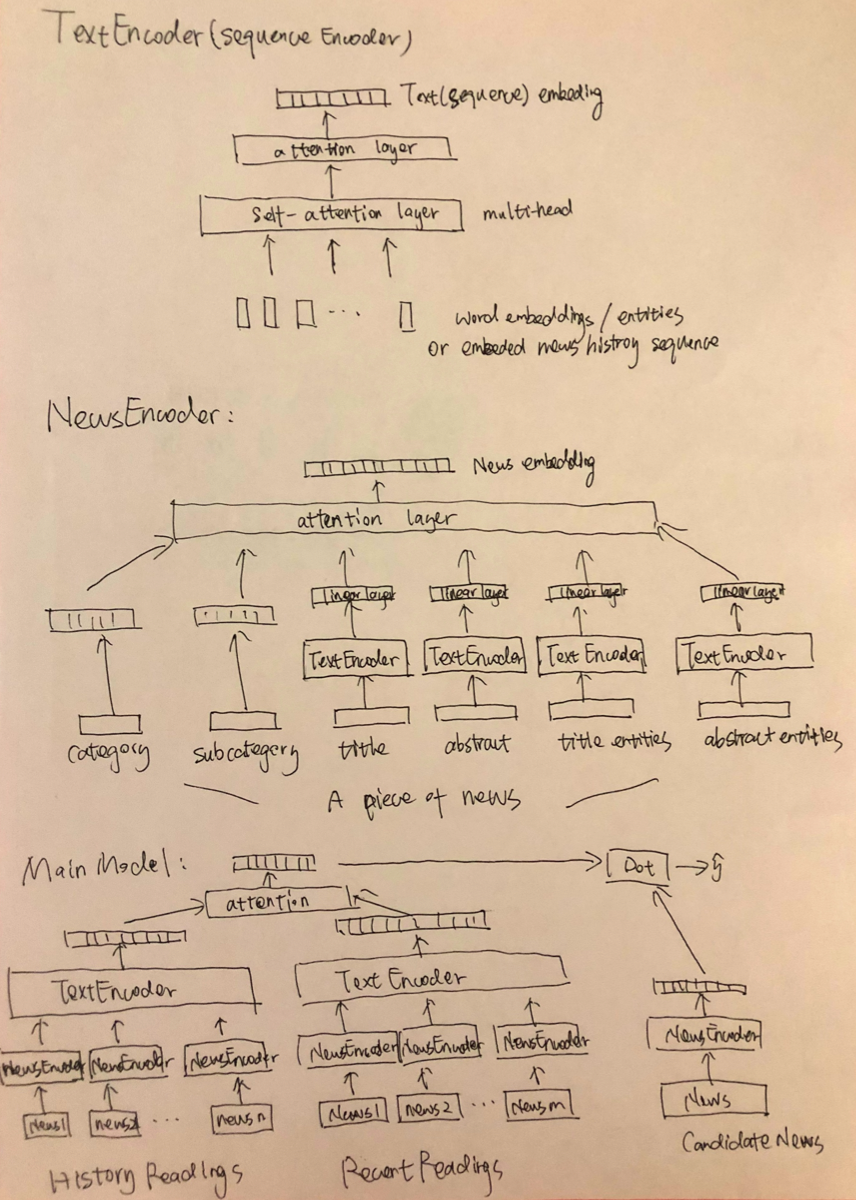 TextEncoder (sequence Encoder)
Text(sequence) embeding
attention layer
Self-attention layer
multi-head
...
word embeddings / entities
or embeded news histroy sequence
NewsEncoder:
News embedding
attention layer
linear layer linear layer linear layer linear layer
TextEncoder TextEncoder Text Encoder TextEncoder
category subcategory title abstract title entities abstract entities
A piece of news
Main Model:
Dot → ŷ
attention
TextEncoder Text Encoder
NewsEncoder NewsEncoder NewsEncoder NewsEncoder NewsEncoder NewsEncoder NewsEncoder
News1 news2 ... news n News1 news2 ... News m News
History Readings Recent Readings Candidate News